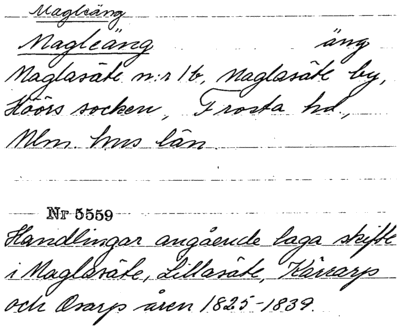 Magleäng
Magleäng äng
Maglasäte n:r 1b, Maglasäte by,
Höörs socken, Frosta hd.,
Mlm. hus län.
Nr 5559
Handlingar angående laga skifte
i Maglasäte, Lillasäte, Kärrarp
och Osarp åren 1825-1839.